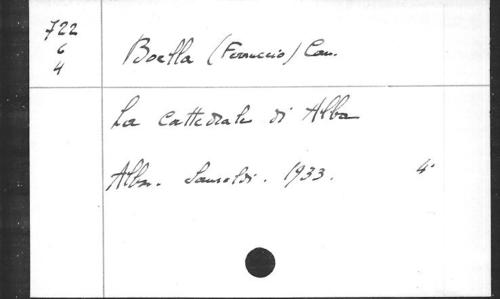 722
6
4
Boella (Ferruccio) Can.
La cattedrale di Alba
Alba. Sansoldi. 1933. 4°